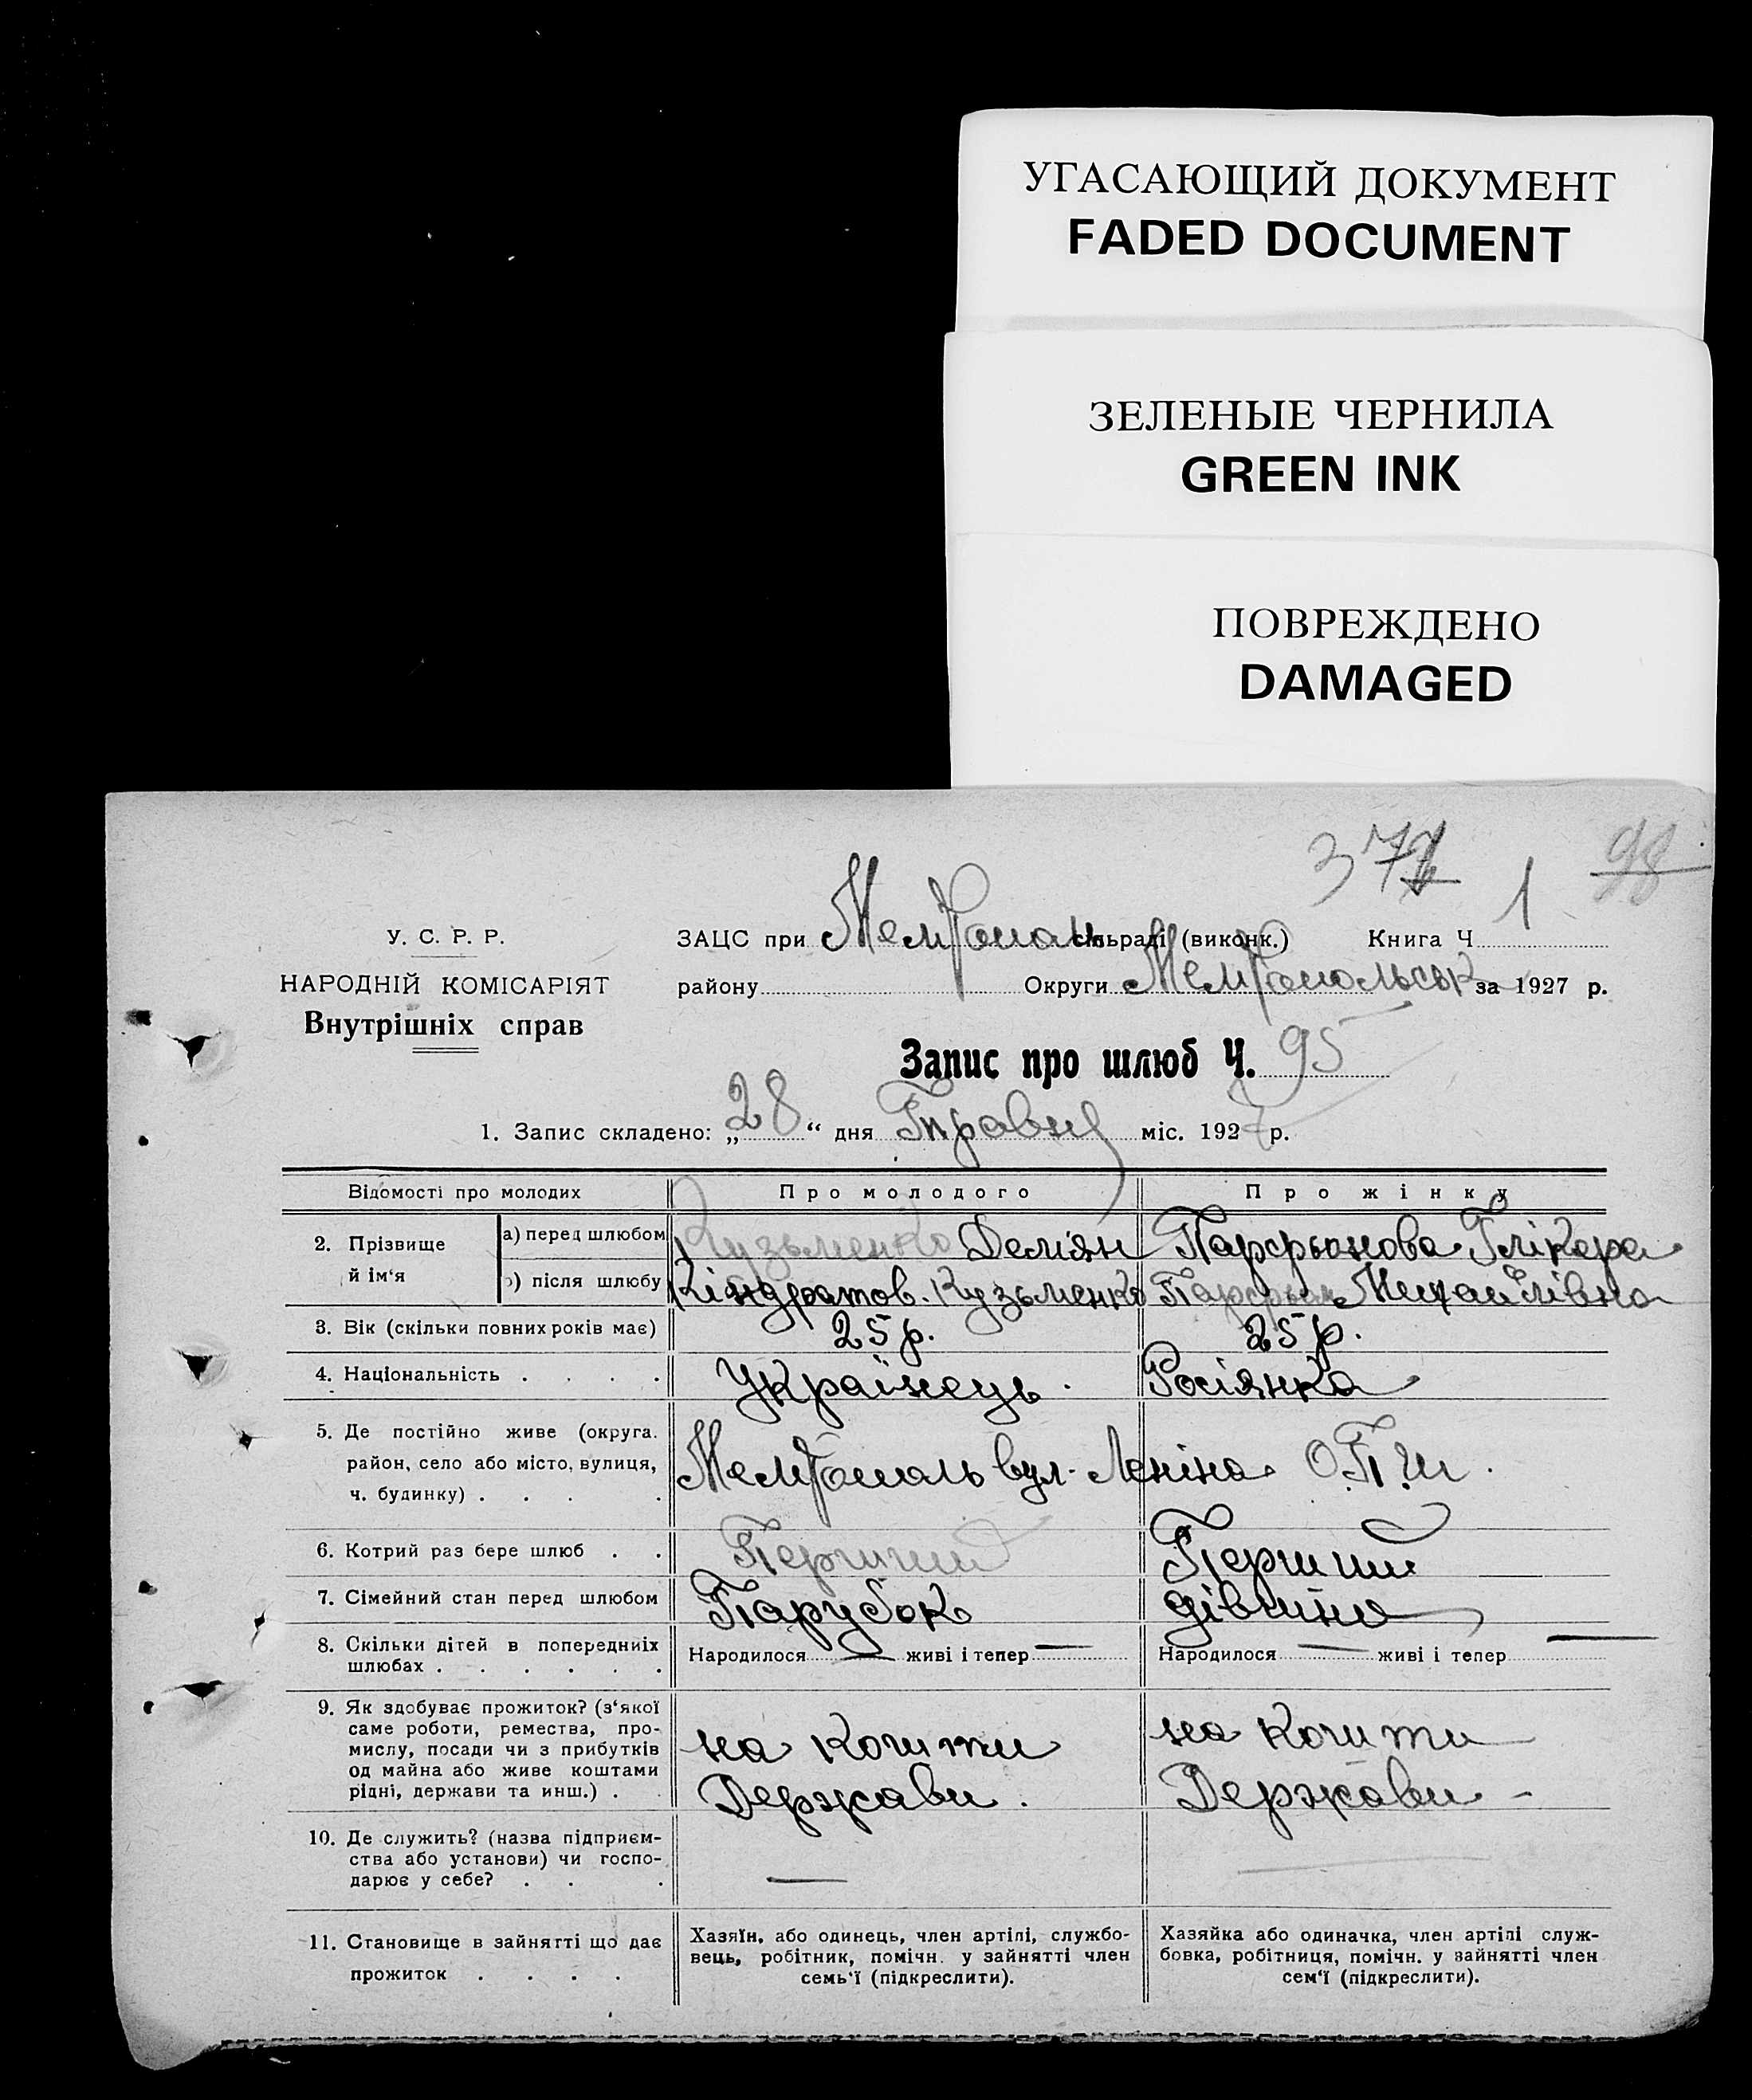 УГАСАЮЩИЙ ДОКУМЕНТ
FADED DOCUMENT
ЗЕЛЕНЫЕ ЧЕРНИЛА
GREEN INK
ПОВРЕЖДЕНО
DAMAGED
98
1
У. С. Р. Р.
НАРОДНІЙ КОМІСАРІЯТ
Внутрішніх справ
ЗАЦС при Мелітополь сільраді (виконк.) Книга Ч. 1
району Округи Мелітопольськ за 1927 р.
Запис про шлюб Ч. 95
1. Запис складено: „28“ дня Травня міс. 1927 р.
Відомості про молодих Про молодого Про жінку
2. Прізвище й ім‘я
а) перед шлюбом Кузьменко Демян Парфьонова Глікера
б) після шлюбу Кіндратов. Кузьменко Михайлівна
3. Вік (скільки повних років має) 25 р. 25 р.
4. Національність . . . . Українець. Росіянка
5. Де постійно живе (округа.
район, село або місто, вулиця,
ч. будинку) . . . .
Мелітополь вул. Леніна
6. Котрий раз бере шлюб . . Перший Перший
7. Сімейний стан перед шлюбом Парубок дівчина
8. Скільки дітей в попередниіх
шлюбах . . . . . .
Народилося — живі і тепер — Народилося — живі і тепер —
9. Як здобуває прожиток? (з‘якої
саме роботи, ремества, про-
мислу, посади чи з прибутків
од майна або живе коштами
рідні, держави та инш.) . .
на кошти
Держави.
на кошти
Держави -
10. Де служить? (назва підприєм-
ства або установи) чи госпо-
дарює у себе? . . .
—
11. Становище в зайнятті що дає
прожиток . . . .
Хазяїн, або одинець, член артілі, службо-
вець, робітник, помічн. у зайнятті член
семь‘ї (підкреслити).
Хазяйка або одиначка, член артілі служ-
бовка, робітниця, помічн. у зайнятті член
сем‘ї (підкреслити).